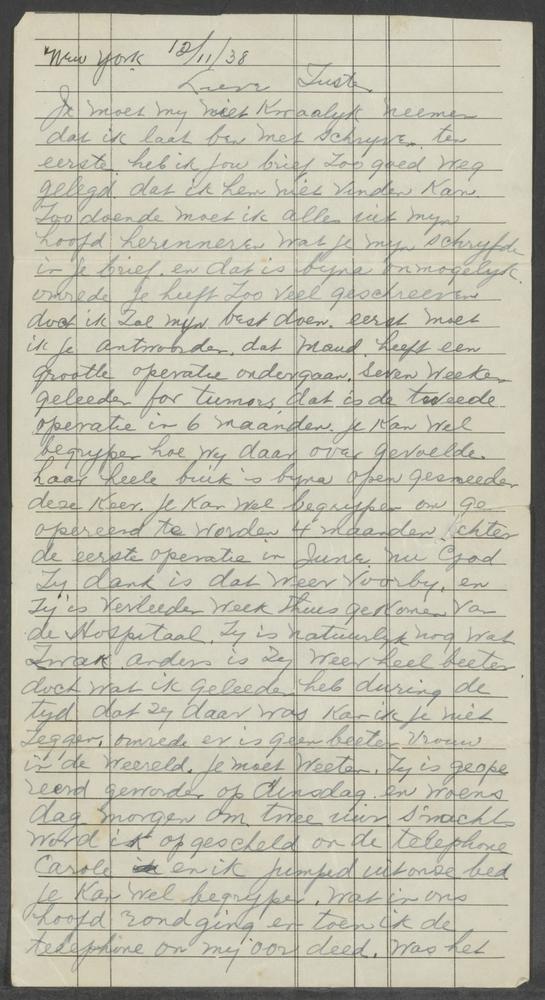 New York 12/11/38
Lieve Zuster
Je moet my niet Kwaalyk neemen
dat ik laat ben met schryven ten
eerste heb ik jou brief zoo goed weg
gelegd dat ik hem niet vinden Kan.
Zoo doende moet ik alles uit myn
hoofd herinneren wat je myn schryfde
in je brief, en dat is byna onmogelyk.
omrede je heeft zoo veel geschreeven
doch ik zal myn best doen. eerst moet
ik je antwoorden, dat Maud heeft een
grootte operatie ondergaan, seven weeken
geleeden for tumors, dat is de tweede
operatie in 6 maanden. je Kan wel
begrypen hoe wy daar over gevoelde.
haar heele buik is byna open gesneeden
deze Keer. je Kan wel begrypen om ge
opereerd te worden 4 maanden achter
de eerste operatie in June, nu God
Zy dank is dat weer voorby, en
Zy is verleeden week thuis gekomen van
de Hospitaal. Zy is natuurlyk nog wat
Zwak anders is Zy weer heel beeter
doch wat ik geleeden heb during de
tyd dat zy daar was Kan ik je niet
zeggen, omrede er is geen beeter vrouw
in de weereld. je moet weeten, Zy is geope
reerd geworden op dinsdag en woens
dag morgen om twee uur s'nachts
word ik opgescheld on de telephone
Carole en ik jumped uit onse bed
je Kan wel begrypen, wat in ons
hoofd rond ging en toen ik de
telephone on mij oor deed. was het